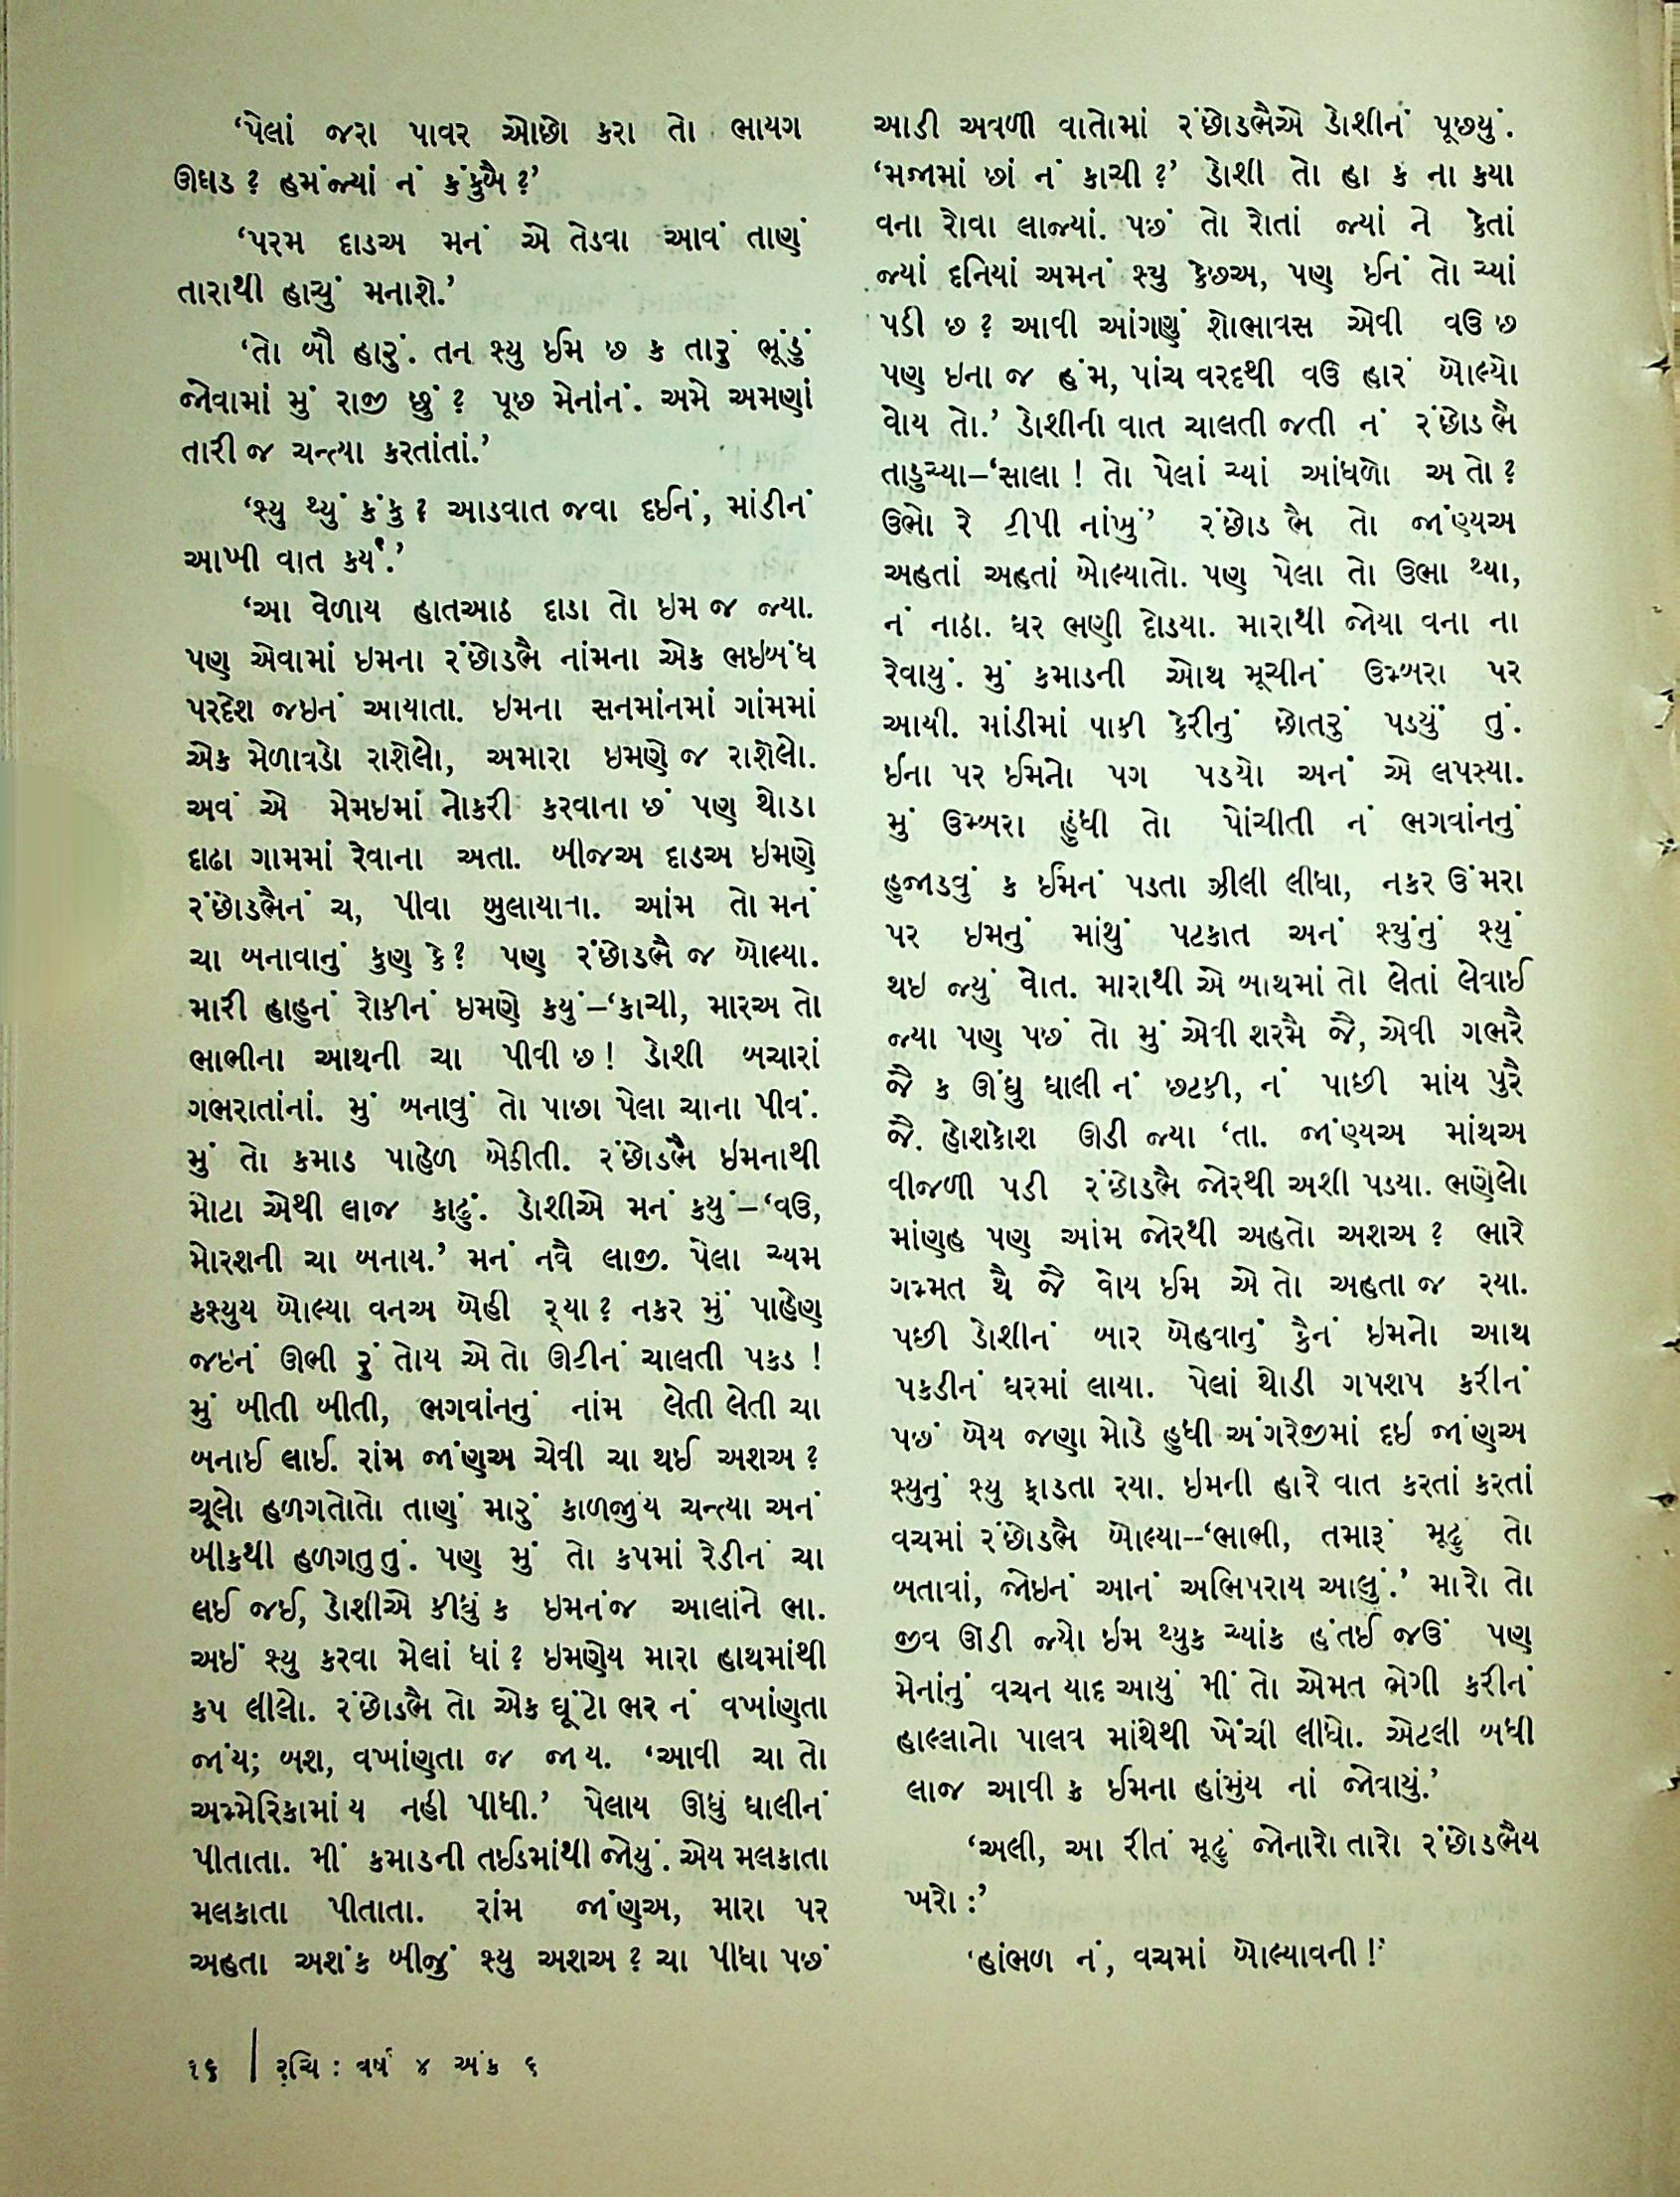 ‘પેલાં જરા પાવર ઓછો કરા તો ભાયગ
ઊઘડ ? હમંજ્યાં નં કંકુબૈ ?’
‘પરમ દાડઅ મનં એ તેડવા આવં તાણું
તારાથી હાચું મનાશે.’
‘તો બૌ હારું. તન શ્યુ ઈમ છ ક તારું ભૂંડું
જોવામાં મું રાજી છું ? પૂછ મેનાંનં. અમે અમણાં
તારી જ ચન્ત્યા કરતાંતાં.’
‘શ્યુ થ્યું કંકુ ? આડવાત જવા દઈનં, માંડીનં
આખી વાત કર્યં.’
‘આ વેળાય હાતઆઠ દાડા તો ઇમ જ જ્યા.
પણ એવામાં ઇમના રંછોડભૈ નાંમના એક ભઇબંધ
પરદેશ જઇનં આયાતા. ઇમના સનમાંનમાં ગાંમમાં
એક મેળાવડો રાશેલો, અમારા ઇમણે જ રાશેલો.
અવં એ મેમઇમાં નોકરી કરવાના છં પણ થોડા
દાઢા ગામમાં રેવાના અતા. બીજઅ દાડઅ ઇમણે
રંછોડભૈનં ચ, પીવા બુલાયાતા. આંમ તો મનં
ચા બનાવાનું કુણ કે ? પણ રંછોડભૈ જ બોલ્યા.
મારી હાહુનં રોકીનં ઇમણે કયું–‘કાચી, મારઅ તો
ભાભીના આથની ચા પીવી છ ! ડોશી બચારાં
ગભરાતાંનાં. મું બનાવું તો પાછા પેલા ચાના પીવં.
મું તો કમાડ પાહેળ બેઠીતી. રંછોડભૈ ઇમનાથી
મોટા એથી લાજ કાઢું. ડોશીએ મનં કયું–‘વઉ,
મોરશની ચા બનાય.’ મનં નવૈ લાજી. પેલા ચ્યમ
કશ્યુય બોલ્યા વનઅ બેહી ર્‌યા ? નકર મું પાહેણ
જઇનં ઊભી રું તોય એ તો ઊઠીનં ચાલતી પકડ !
મું બીતી બીતી, ભગવાંનનું નાંમ લેતી લેતી ચા
બનાઈ લાઈ. રાંમ જાંણઅ ચેવી ચા થઈ અશઅ ?
ચૂલો હળગતોતો તાણું મારું કાળજુંય ચન્ત્યા અનં
બીકથી હળગતુતું. પણ મું તો કપમાં રેડીનં ચા
લઈ જઈ, ડોશીએ કીધું ક ઇમનંજ આલાંને ભા.
અઇં શ્યુ કરવા મેલાં ધાં ? ઇમણેય મારા હાથમાંથી
કપ લીલો. રંછોડભૈ તો એક ઘૂંટો ભર નં વખાંણતા
જાંય; બશ, વખાંણતા જ જાય. ‘આવી ચા તો
અમ્મેરિકામાંય નહી પીધી.’ પેલાય ઊધું ઘાલીનં
પીતાતા. મીં કમાડની તઈડમાંથી જોયું. એય મલકાતા
મલકાતા પીતાતા. રાંમ જાંણઅ, મારા પર
અહતા અશંક બીજું શ્યુ અશઅ ? ચા પીધા પછં
આડી અવળી વાતોમાં રંછોડભૈએ ડોશીનં પૂછ્યું.
‘મજામાં છાં નં કાચી ?’ ડોશી તો હા ક ના કયા
વના રોવા લાજ્યાં. પછં તો રોતાં જ્યાં ને કેતાં
જ્યાં દનિયાં અમનં શ્યુ કેછઅ, પણ ઈનં તો ચ્યાં
પડી છ ? આવી આંગણું શોભાવસ એવી વઉ છ
પણ ઇના જ હંમ, પાંચ વરદથી વઉ હારં બોલ્યો
વોય તો.’ ડોશીની વાત ચાલતી જતી નં રંછોડભૈ
તાડુચ્યા–‘સાલા ! તો પેલાં ચ્યાં આંધળો અ તો ?
ઉભો રે ટીપી નાંખું’ રંછોડ ભૈ તો જાંણ્યઅ
અહતાં અહતાં બોલ્યાતો. પણ પેલા તો ઉભા થ્યા,
નં નાઠા. ઘર ભણી દોડયા. મારાથી જોયા વના ના
રેવાયું. મું કમાડની ઓથ મૂચીનં ઉમ્બરા પર
આયી. માંડીમાં પાકી કેરીનું છોતરું પડયું તું.
ઈના પર ઈમનો પગ પડયો અનં એ લપસ્યા.
મું ઉમ્બરા હુંધી તો પોંચીતી નં ભગવાંનનું
હુજાડવું ક ઈમનં પડતા ઝીલી લીધા, નકર ઉંમરા
પર ઇમનું માંથું પટકાત અનં શ્યુંનું શ્યું
થઇ જ્યું વોત. મારાથી એ બાથમાં તો લેતાં લેવાઈ
જ્યા પણ પછં તો મું એવી શરમૈ જૈ, એવી ગભરૈ
જૈ ક ઊંધુ ઘાલી નં છટકી, નં પાછી માંય પુરૈ
જૈ. હોશકોશ ઊડી જ્યા ‘તા. જાંણ્યઅ માંથઅ
વીજળી પડી રંછોડભૈ જોરથી અશી પડયા. ભણેલો
માંણહ પણ આંમ જોરથી અહતો અશઅ ? ભારે
ગમ્મત થૈ જૈ વોય ઈમ એ તો અહતા જ રયા.
પછી ડોશીનં બાર બેહવાનું કૈનં ઇમનો આથ
પકડીનં ઘરમાં લાયા. પેલાં થોડી ગપશપ કરીનં
પછં બેય જણા મોડે હુધી અંગરેજીમાં દઇ જાંણઅ
શ્યુનું શ્યુ ફાડતા રયા. ઇમની હારે વાત કરતાં કરતાં
વચમાં રંછોડભૈ બોલ્યા--‘ભાભી, તમારૂં મૂઢુ તો
બતાવાં, જોઇનં આનં અભિપરાય આલું.’ મારો તો
જીવ ઊડી જ્યો ઇમ થ્યુક ચ્યાંક હંતઈ જઉં પણ
મેનાંનું વચન યાદ આયું મીં તો એમત ભેગી કરીનં
હાલ્લાનો પાલવ માંથેથી ખેંચી લીધો. એટલી બધી
લાજ આવી ક ઈમના હાંમુંય નાં જોવાયું.’
‘અલી, આ રીતં મૂઢું જોનારો તારો રંછોડભૈય
ખરો :’
‘હાંભળ નં, વચમાં બોલ્યાવની !’
૧૬ | રુચિ : વર્ષ ૪ અંક ૬